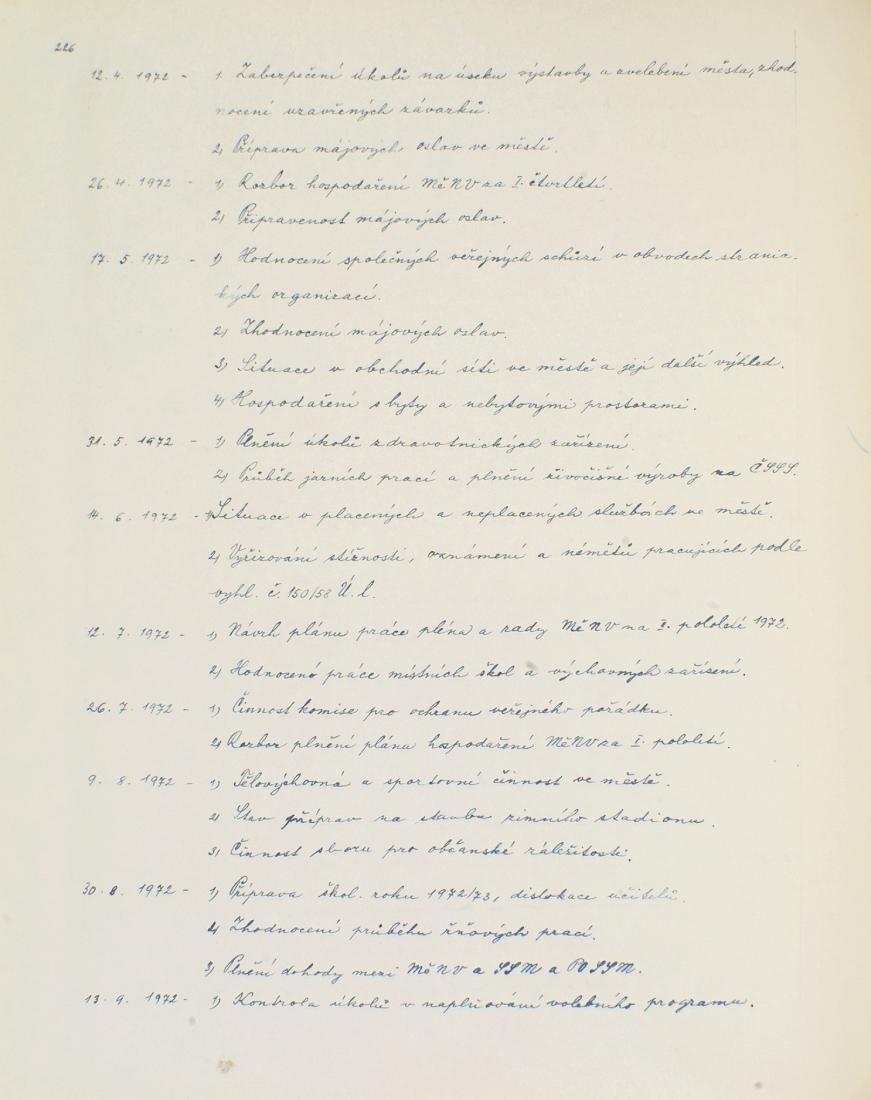 226
12. 4. 1972 - 1. Zabezpečení úkolů na úseku výstavby a zvelebení města, zhod-
nocení uzavřených závazků.
2) Příprava májových oslav ve městě.
26. 4. 1972 - 1) Rozbor hospodaření MěNV za I. čtvrtletí.
2) Připravenost májových oslav.
17. 5. 1972 - 1) Hodnocení společných veřejných schůzí v obvodech stranic-
kých organizací.
2) Zhodnocení májových oslav.
3) Situace v obchodní síti ve městě a její další výhled.
4) Hospodaření s byty a nebytovými prostorami.
31. 5. 1972 - 1) Plnění úkolů zdravotnických zařízení.
2) Průběh jarních prací a plnění živočišné výroby na ČSSS.
14. 6. 1972 - 1) Situace v placených a neplacených službách ve městě.
2) Vyřizování stížností, oznámení a námětů pracujících podle
vyhl. č. 150/58 Ú. l.
12. 7. 1972 - 1) Návrh plánu práce pléna a rady MěNV na II. pololetí 1972.
2) Hodnocení práce místních škol a výchovných zařízení.
26. 7. 1972 - 1) Činnost komise pro ochranu veřejného pořádku.
2) Rozbor plnění plánu hspodaření MěNV za I. pololetí.
9. 8. 1972 - 1) Tělovýchovná a sportovní činnost ve městě.
2) Stav příprav na stavbu zimního stadionu.
3) Činnost sboru pro občanské záležitosti.
30. 8. 1972 - 1) Příprava škol. roku 1972/73, dislokace učitelů.
2) Zhodnocení průběhu žňových prací.
3) Plnění dohody mezi MěNV a SSM a POSSM.
13. 9. 1972 - 1) Kontrola úkolů v naplňování volebního programu.